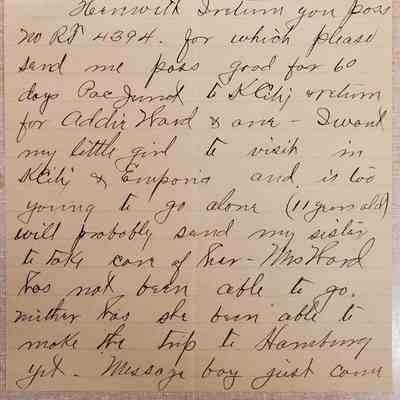 Herewith I return you pass
No RF 4394. for which please
send me pass good for 60
days Pac Junct to K City & return
for Addie Ward & one - I want
my little girl to visit in
K City & Emporia and is too
young to go alone (11 years old)
will probably send my sister
to take care of her - Mrs Ward
has not been able to go.
neither has she been able to
make the trip to Hamburg
yet. Message boy just came